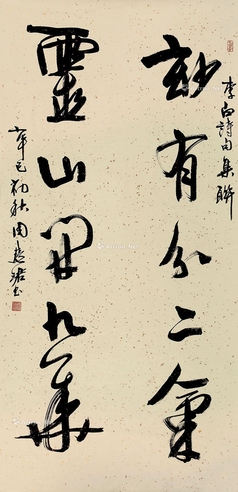 李白詩句集聯
妙有分二氣
靈山開九華
辛巳初秋周慧珺书